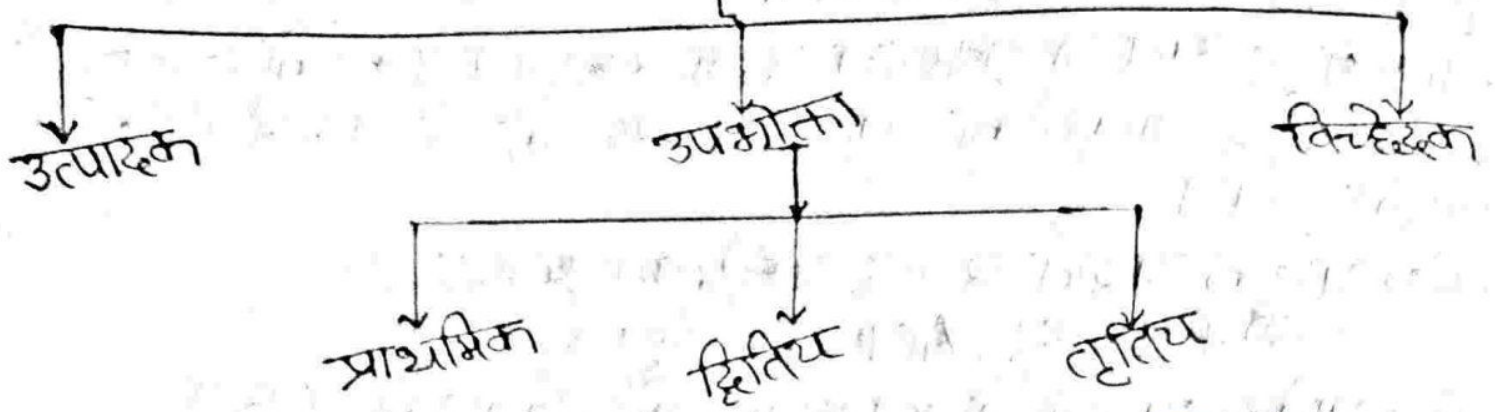 उत्पादक उपभोक्ता विच्छेदक
प्राथमिक द्वितिय तृतिय